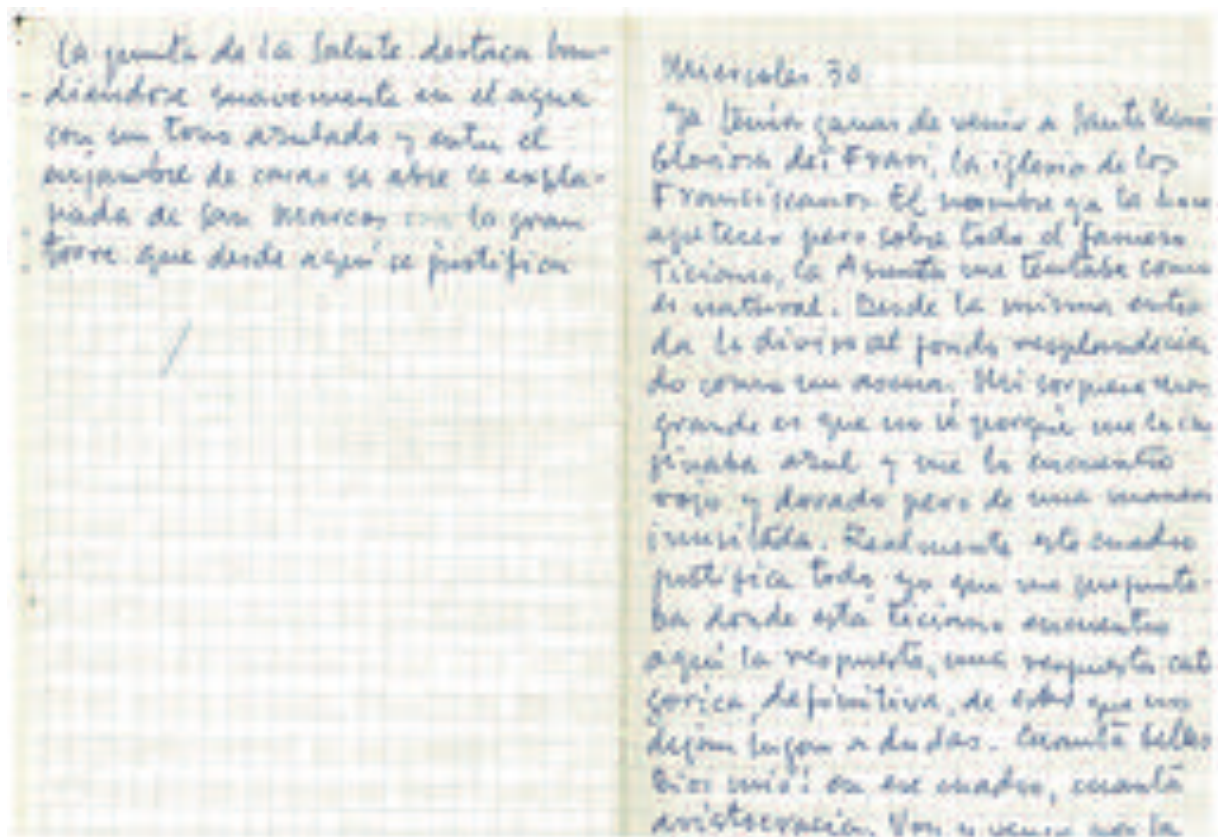 la punta de la Salute destaca hun-
diendose suavemente en el agua
con un tono azulado y entre el
enjambre de casas se abre la expla-
nada de San Marcos con la gran
torre que desde aquí se justifica
Miercoles 30
Ya tenía ganas de venir a Santa
Gloriosa dei Frari, la iglesia de los
Franciscanos. El nombre ya la hace
apetecer pero sobre todo el famoso
Ticiano, la Asunta me tentaba como
es natural. Desde la misma entra
da la diviso al fondo resplandecien
do como un ascua. Mi sorpresa mas
grande es que no sé porqué me la ima
ginaba azul y me la encuentro
rojo y dorado pero de una manera
inusitada. Realmente este cuadro
justifica todo yo que me pregunta-
ba donde esta Ticiano encuentro
aquí la respuesta, una respuesta cate
gorica, definitiva, de estas que no
dejan lugar a dudas. Cuanta belleza
Dios mio! en ese cuadro, cuanta
aristocracia. Voy y vengo por la